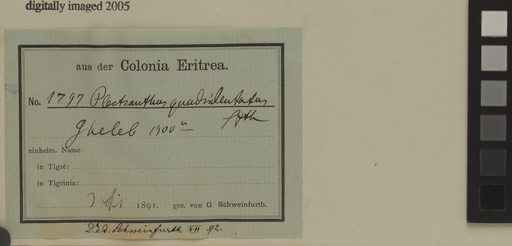 digitally imaged 2005
aus der Colonia Eritrea.
No. 1797 Plectranthus quadridentatus
Gheleb 1900 m
einheim. Name
in Tigrè:
in Tigrinia:
3 1891. ges. von G. Schweinfurth.
Ded. Schweinfurth XII 92.